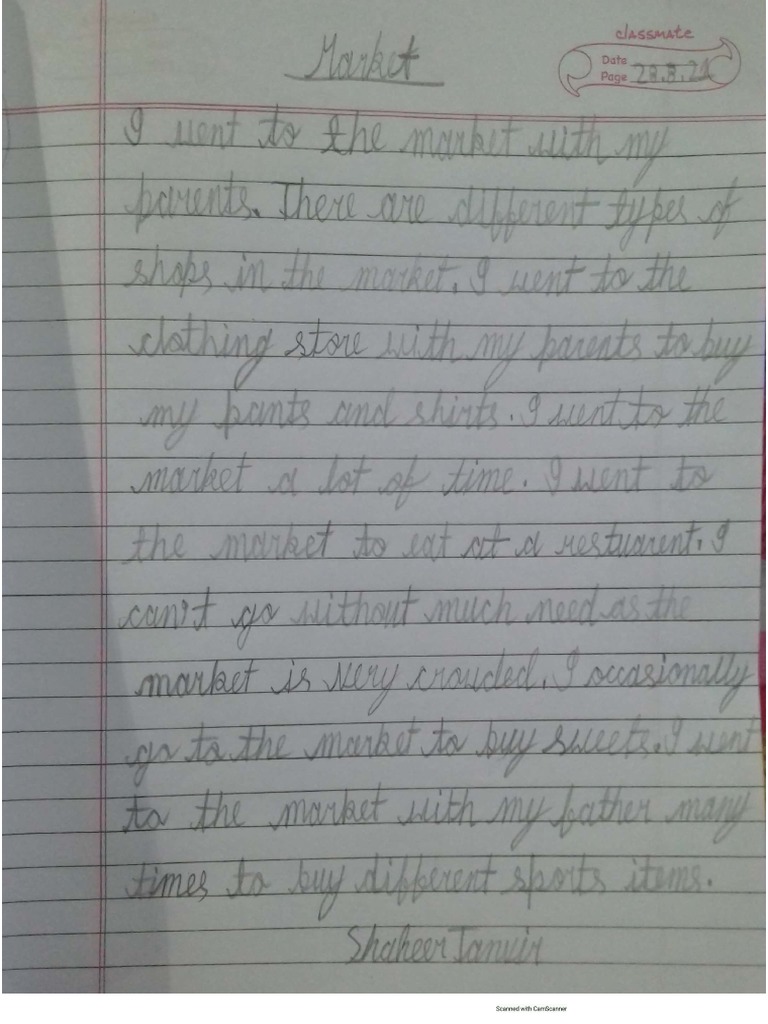 Market
classmate
Date
Page 28.8.21
I went to the market with my
parents. There are different types of
shops in the market. I went to the
clothing store with my parents to buy
my pants and shirts. I went to the
market a lot of time. I went to
the market to eat at a restuarent. I
can't go without much need as the
market is very crouded. I occasionally
go to the market to buy sweets. I went
to the market with my father many
times to buy different sports items.
Shaheer Tanvir
Scanned with CamScanner